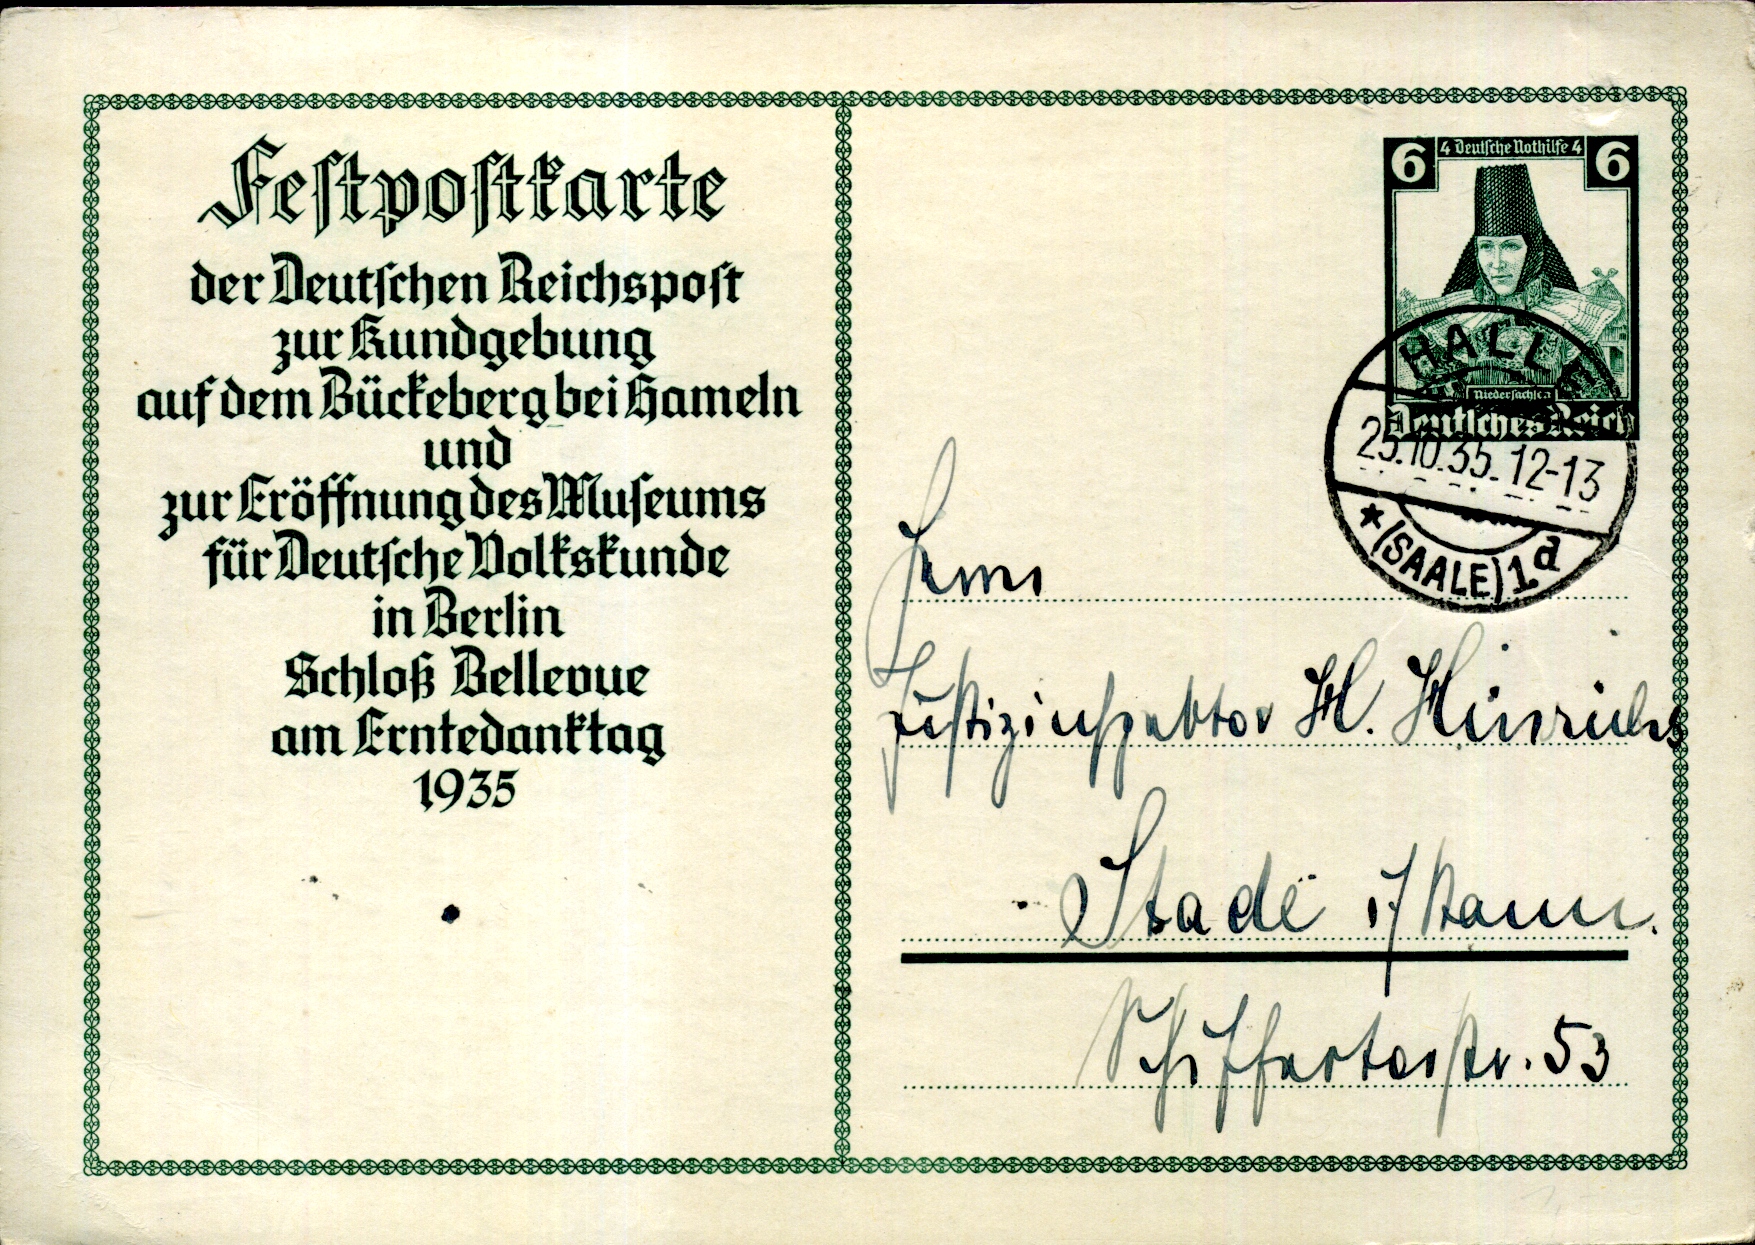 Festpostkarte
der Deutschen Reichspost
zur Kundgebung
auf dem Bückeberg bei Hameln
und
zur Eröffnung des Museums
für Deutsche Volkskunde
in Berlin
Schloß Bellevue
am Erntedanktag
1935
6 4 Deutsche Nothilfe 4 6
Niedersachsen
Deutsches Reich
HALLE
25.10.35. 12-13
* (SAALE) 1d
Herrn
Justizinspektor H. Hinrichs
Stade i/Hann.
Schiffertorstr. 53